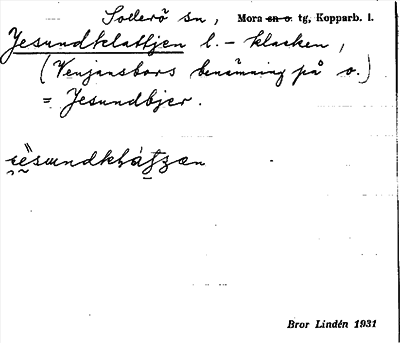 Soderö sn, Mora sn o. tg, Kopparb. l.
Jesundklattjen l. – klacken,
(Venjansbors benämning på o.)
= Jesundbjer.
Bror Lindén 1931